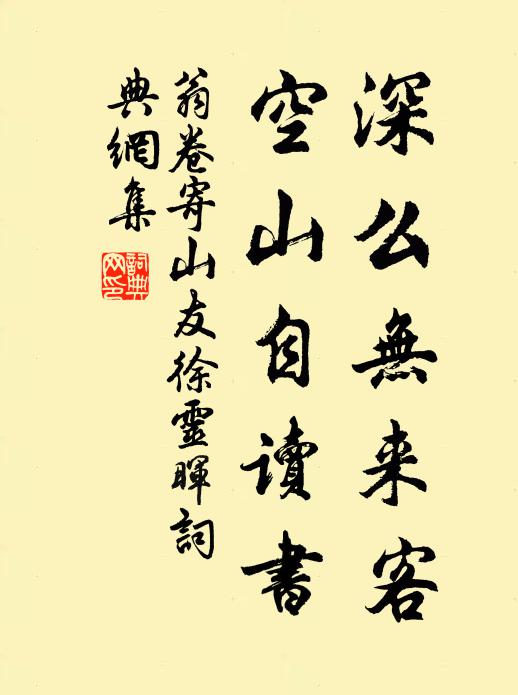 深么無来客
空山自讀書
翁卷寄山友徐靈暉詞
典網集
詞典网印